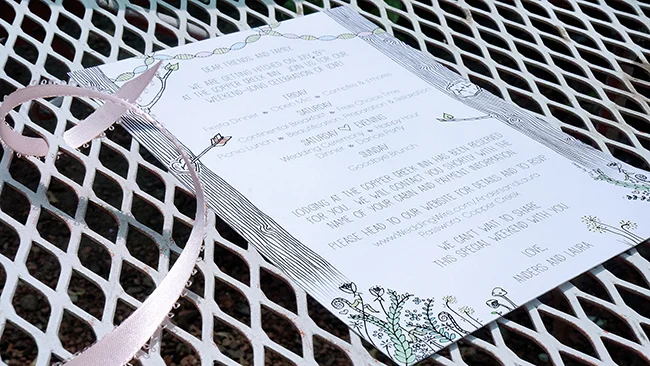 DEAR FRIENDS AND FAMILY,
WE ARE GETTING HITCHED ON JULY 19TH
AT THE COPPER CREEK INN. JOIN US FOR OUR
WEEKEND-LONG CELEBRATION OF LOVE!
FRIDAY
Taco Dinner • Open Mic • Campfire & S'mores
SATURDAY
Continental Breakfast • Free Choice Time
Picnic Lunch • Beautification, Preparation & Relaxation
SATURDAY ♡ EVENING!
Wedding Ceremony • Happy Hour
Dinner • Dance Party
SUNDAY
Goodbye Brunch
LODGING AT THE COPPER CREEK INN HAS BEEN RESERVED
FOR YOU. WE WILL CONTACT YOU SHORTLY WITH THE
NAME OF YOUR CABIN AND PAYMENT INFORMATION.
PLEASE HEAD TO OUR WEBSITE FOR DETAILS AND TO RSVP
Password: Copper Creek
WE CAN'T WAIT TO SHARE
THIS SPECIAL WEEKEND WITH YOU.
LOVE,
ANDERS AND LAURA